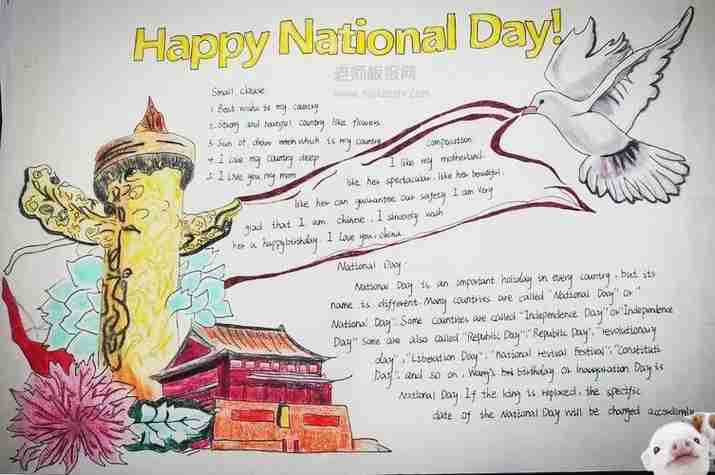 Happy National Day!
老师板报网
Small chinese
1. Best wishes to my country
2. Strong and beautiful country like flowers
3. Sun of which is my country
4. I Love my country deep
5. I Love you my mom
Composition
I like my motherland.
like her spectacular, like her beautiful,
like her can guarantee our safety I am very
glad that I am chinese, I sincerely wish
her a happy birthday I Love you, china
National Day
National Day is an important holiday in every country, but its
name is different. Many countries are called "National Day" or "
National Day". Some countries are called "Independence Day" or "Independence
Day" some are also called "Republic Day", "Republic Day", "revolutionary
day", "Liberation Day", "National revival Festival", "Constitute
Day", and so on, birthday or Inauguration Day is
National Day. If the king is replaced, the specific
date of the National Day will be changed accordingly